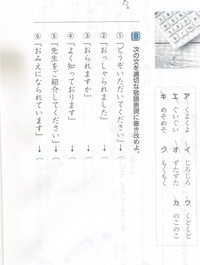 ア くよくよ　イ じろじろ　ウ くどくど
エ ぐいぐい　オ ずたずた　カ のこのこ
キ めそめそ　ク もくもく
8 次の文を適切な敬語表現に書き改めよ。
①「どうぞいただいてください」→（
②「おっしゃられました」→（
③「おられますか」→（
④「よく知っております」→（
⑤「先生をご紹介してください」→（
⑥「おみえになられています」→（